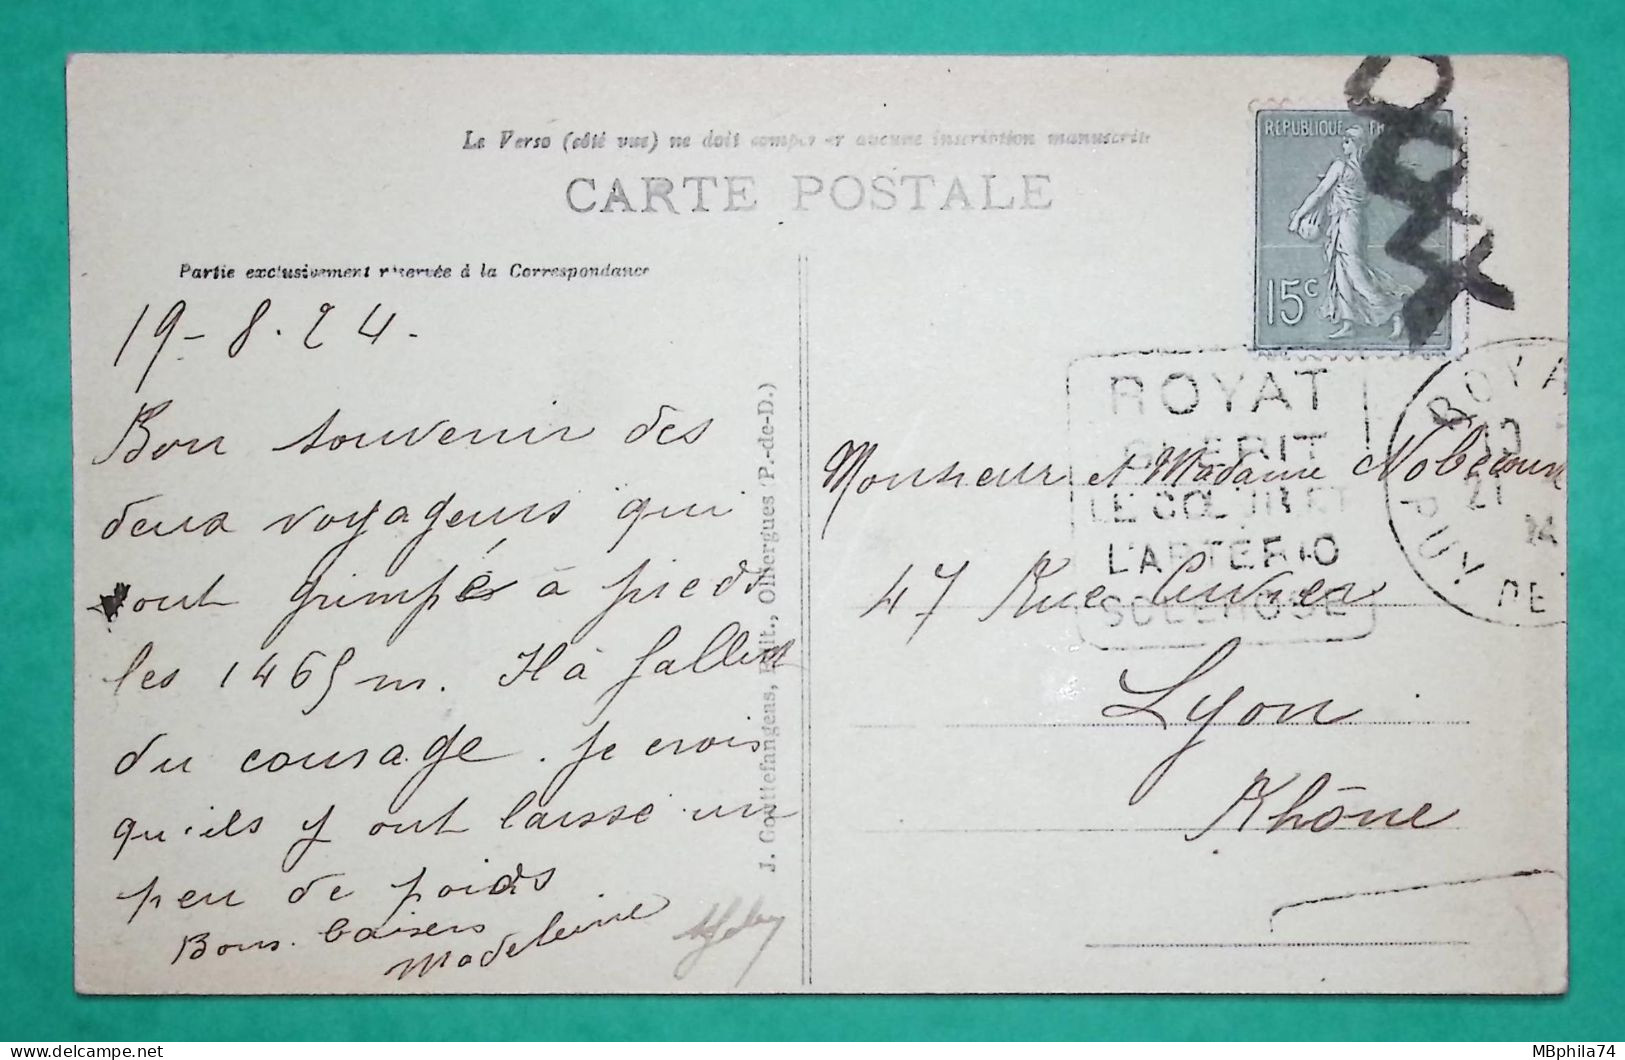 Le Verso (côté vue) ne doit comporter aucune inscription manuscrite
CARTE POSTALE
RÉPUBLIQUE
15c
Partie exclusivement réservée à la Correspondance
19-8.24.
Bon souvenir des
deux voyageurs qui
ont grimpé à pieds
les 1465 m. Il à fallut
du courage. Je crois
qu'ils y ont laissé un
peu de poids
Bons baisers
Madeleine
J. Gouttefangeas, Edit., Olliergues (P.-de-D.)
ROYAT
GUÉRIT
LE CŒUR ET
L'ARTERIO
SCLEROSE
ROYA
21
PUY DE
Monsieur et Madame Nobécour
47 Rue Cuvier
Lyon
Rhône
MBphila74